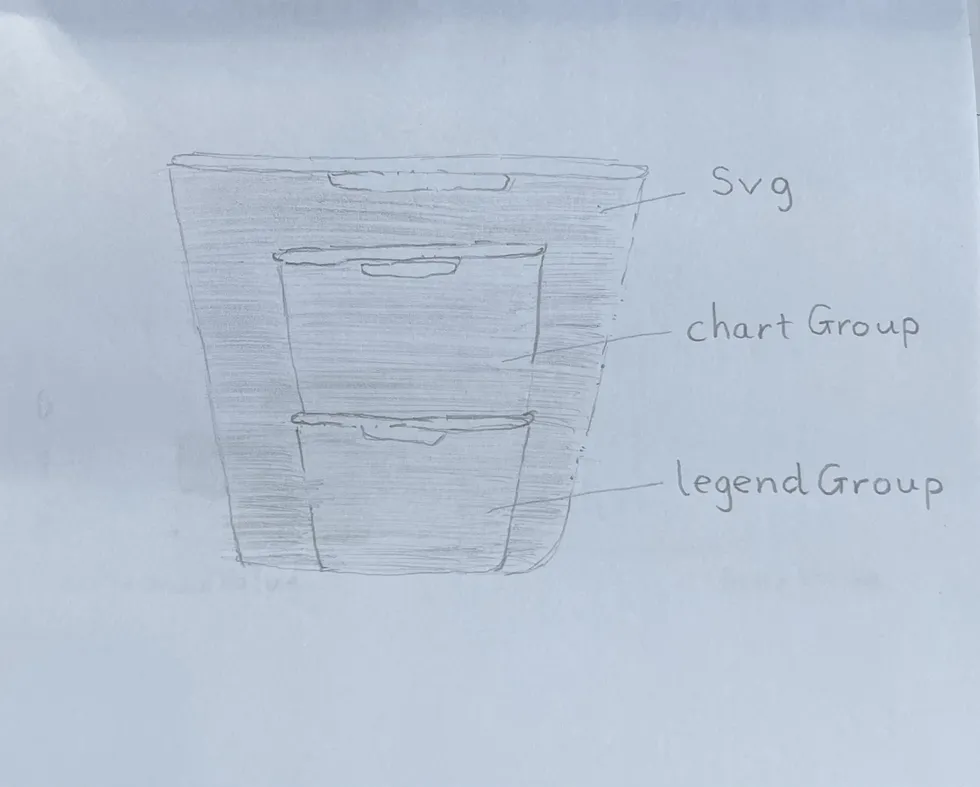 Svg
chart Group
legend Group